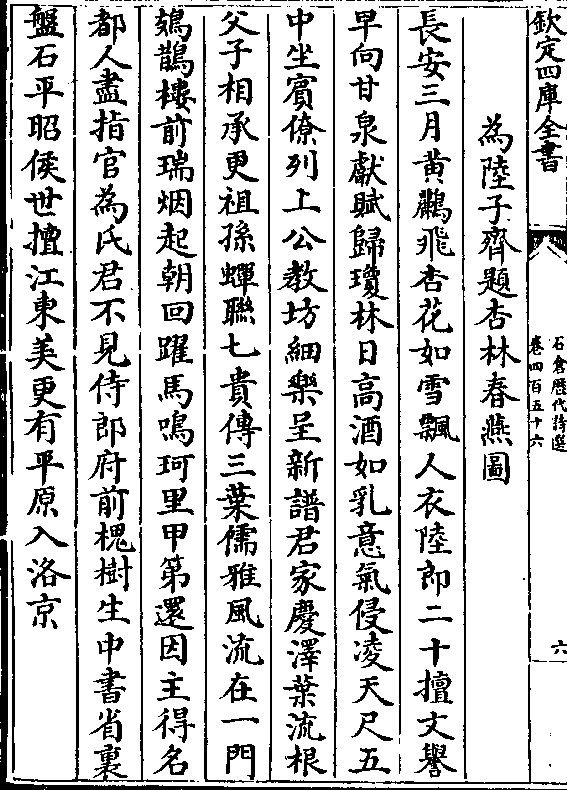 欽定四庫全書
石倉歷代詩選
卷四百五十六
六
為陸子齊題杏林春燕圖
長安三月黃鸝飛杏花如雪飄人衣陸郎二十擅文譽
早向甘泉獻賦歸瓊林日高酒如乳意氣侵凌天尺五
中坐賓僚列上公教坊細樂呈新譜君家慶澤葉流根
父子相承更祖孫蟬聯七貴傳三葉儒雅風流在一門
鳷鵲樓前瑞烟起朝回躍馬鳴珂里甲第還因主得名
都人盡指官為氏君不見侍郎府前槐樹生中書省裏
盤石平昭侯世擅江東美更有平原入洛京